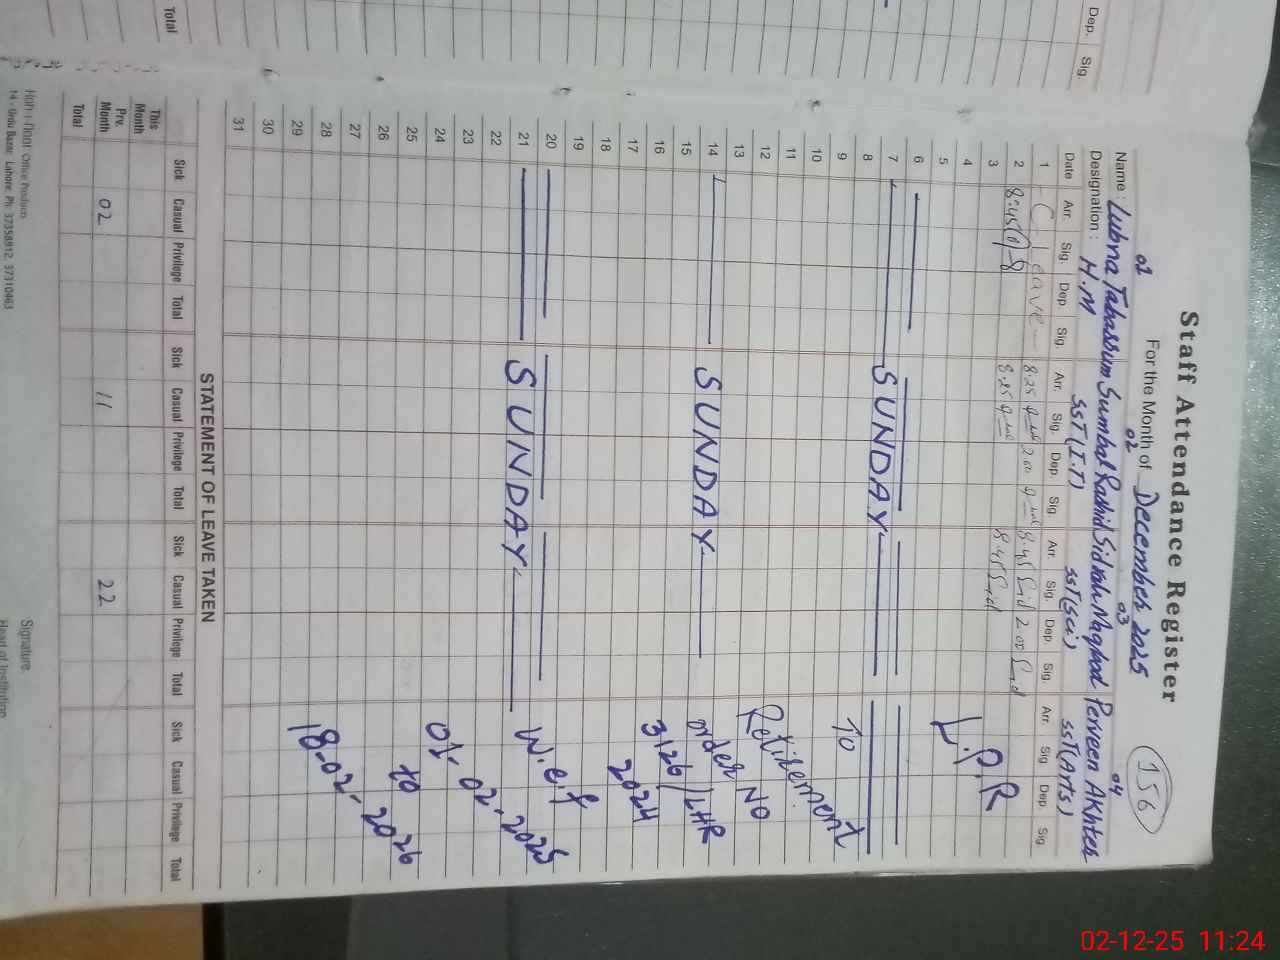 Dep. Sig.
Total
Staff Attendance Register
For the Month of December 2025
156
01 02 03 04
Name : Lubna Tabassum Sumbal Rashid Sidrah Naghod Perveen Akhter
Designation : H.M SST(I.T) SST(Sci) SST(Arts)
Date Arr. Sig. Dep. Sig. Arr. Sig. Dep. Sig. Arr. Sig. Dep. Sig. Arr. Sig Dep. Sig
1 C-Leave 8:25 2:00 8:45 Sid 2:00 Sid
2 8:45 8:25 8:45 Sid
3
4
5 L.P.R
6
7 SUNDAY
8
9 To
10
11
12 Retirement
13
14 SUNDAY order NO
15
16 3126/LHR
17 2024
18
19
20
21 SUNDAY W.e.f
22
23
24 01-02-2025
25 to
26
27
28
29 18-02-2026
30
31
STATEMENT OF LEAVE TAKEN
Sick Casual Privilege Total Sick Casual Privilege Total Sick Casual Privilege Total Sick Casual Privilege Total
This Month
Prv. Month 02 11 22
Total
Office Products
14 - Urdu Bazar Lahore. Ph: 37358812, 37310463
Signature.
Head of Institution
02-12-25 11:24